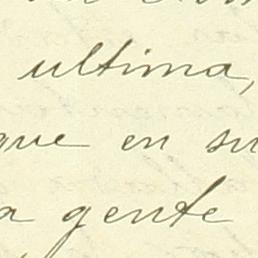 ultima,
que en su
a gente